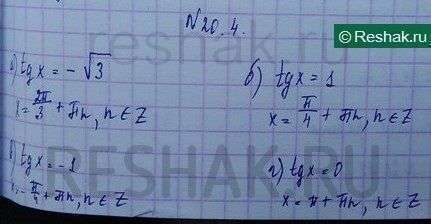 Reshak.ru
N 20.4.
reshak.ru
а) tg x = -√3
x = 2π/3 + πn, n ∈ Z
б) tg x = 1
x = π/4 + πn, n ∈ Z
в) tg x = -1
x = -π/4 + πn, n ∈ Z
г) tg x = 0
x = π + πn, n ∈ Z
RESHAK.RU